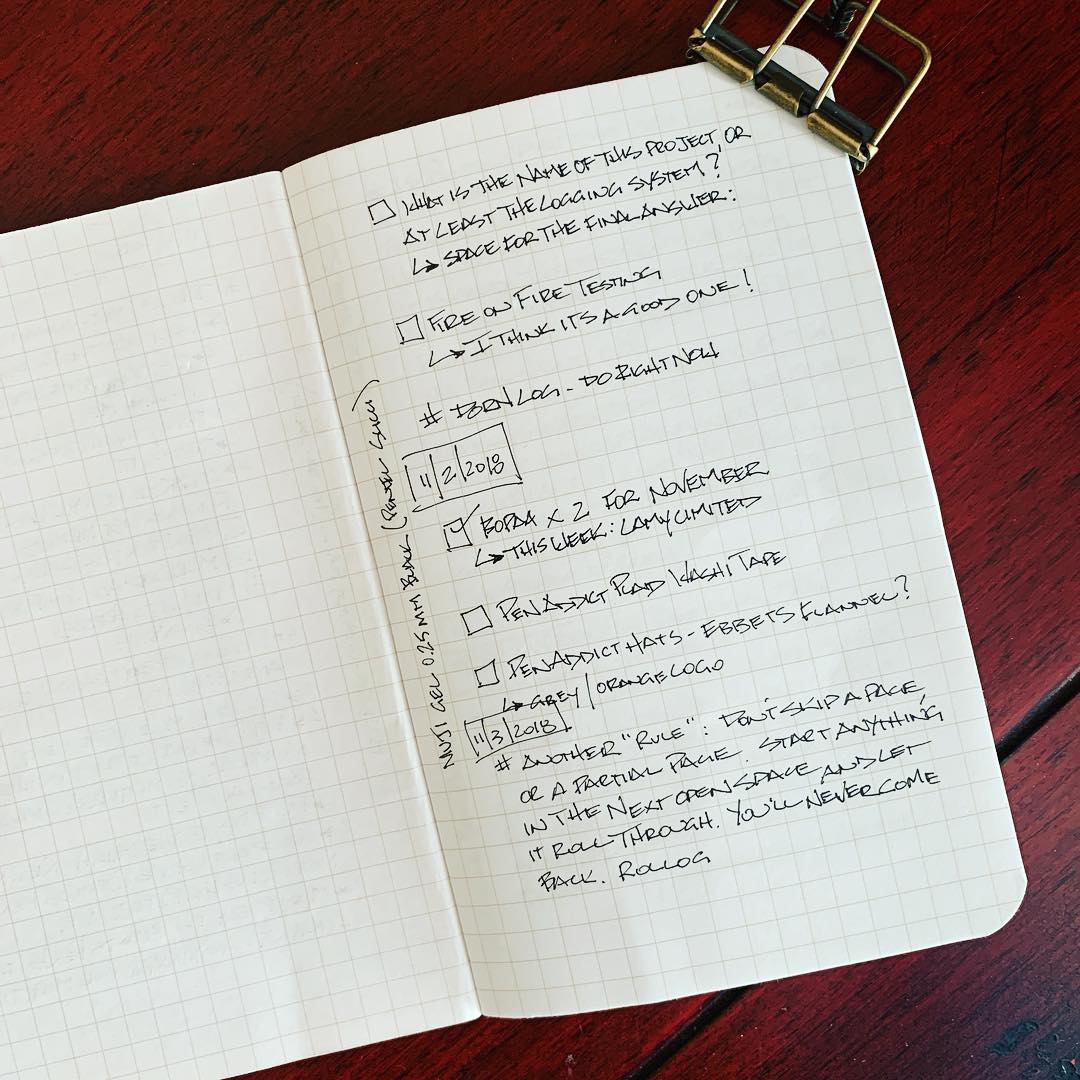 WHAT IS THE NAME OF THIS PROJECT, OR
AT LEAST THE LOGGING SYSTEM?
↳ SPACE FOR THE FINAL ANSWER:
FIRE ON FIRE TESTING
↳ I THINK IT'S A GOOD ONE!
# DORN LOG - DO RIGHT NOW
11/2/2018
BOPAA X 2 FOR NOVEMBER
↳ THIS WEEK: LAMY LIMITED
PEN ADDICT PLAID WASHI TAPE
PEN ADDICT HATS - EBBETS FLANNEL?
↳ GREY/ORANGE LOGO
11/3/2018
# ANOTHER "RULE": DON'T SKIP A PAGE,
OR A PARTIAL PAGE. START ANYTHING
IN THE NEXT OPEN SPACE AND LET
IT ROLL THROUGH. YOU'LL NEVER COME
BACK. ROLLOG
MUJI GEL 0.25MM BLACK (PENTEL SLICCI)